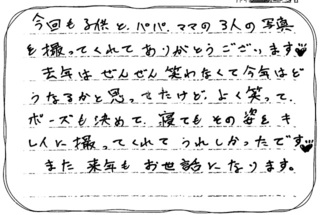 今回も子供と、パパ、ママの3人の写真
を撮ってくれてありがとうございます♥
去年はぜんぜん笑わなくて今年はど
うなるかと思ってたけど、よく笑って、
ポーズも決めて、寝てもその姿をキ
レイに撮ってくれてうれしかったです♥
また来年もお世話になります。